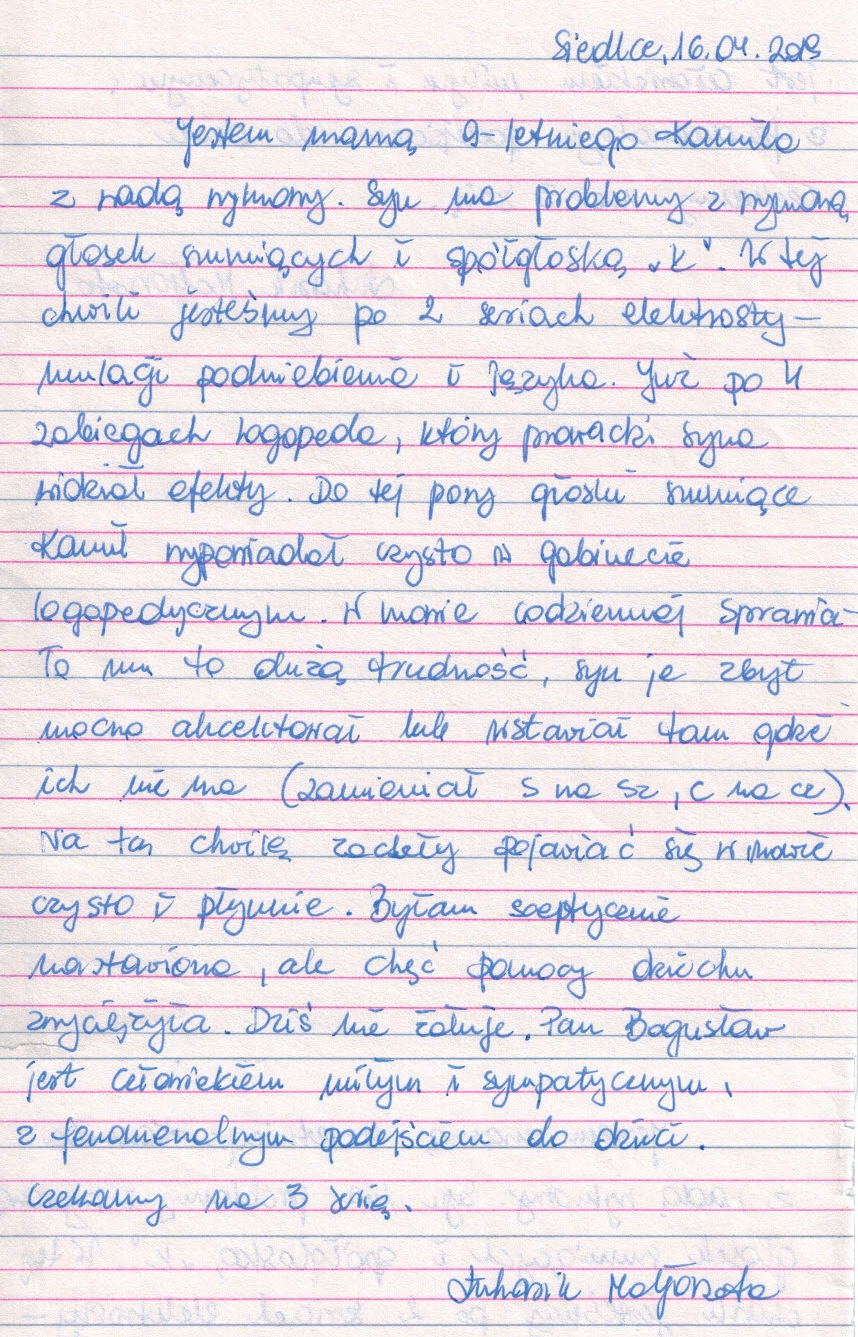 Siedlce, 16.04.2019
Jestem mamą 9-letniego Kamila
z wadą wymowy. Syn ma problemy z wymową
głosek szumiących i spółgłoską „k". W tej
chwili jesteśmy po 2 seriach elektrosty-
mulacji podniebienia i języka. Już po 4
zabiegach logopeda, który prowadzi syna
widział efekty. Do tej pory głoski szumiące
Kamil wypowiadał czysto w gabinecie
logopedycznym. W mowie codziennej sprawia-
ło mu to dużą trudność, syn je zbyt
mocno akcektował lub wstawiał tam gdzie
ich nie ma (zamieniał s na sz, c na cz).
Na tą chwilę zaczęły pojawiać się w mowie
czysto i płynnie. Byłam sceptycznie
nastawiona, ale chęć pomocy dziecku
zwyciężyła. Dziś nie żałuję. Pan Bogusław
jest człowiekiem miłym i sympatycznym,
z fenomenalnym podejściem do dzieci.
Czekamy na 3 serię.
Małgorzata